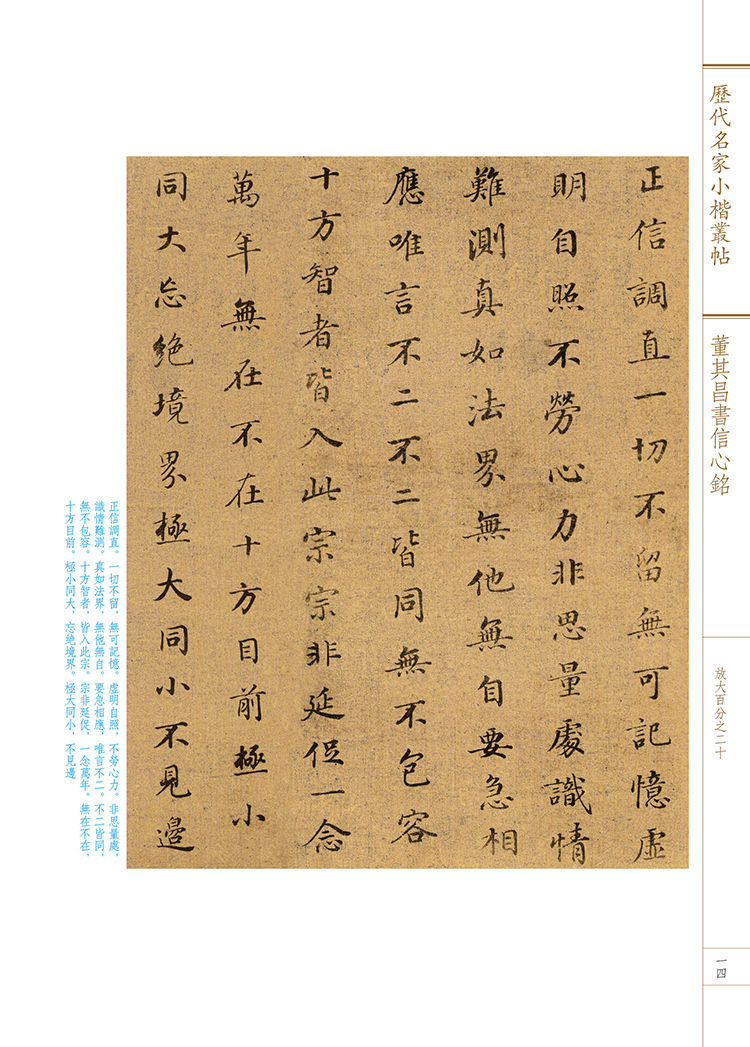 歷代名家小楷叢帖
董其昌書信心銘
放大百分之二十
一四
正信調直一切不留無可記憶虛
明自照不勞心力非思量處識情
難測真如法界無他無自要急相
應唯言不二不二皆同無不包容
十方智者皆入此宗宗非延促一念
萬年無在不在十方目前極小
同大忘絕境界極大同小不見邊
正信調直。一切不留，無可記憶。虛明自照，不勞心力。非思量處，
識情難測。真如法界，無他無自。要急相應，唯言不二。不二皆同，
無不包容。十方智者，皆入此宗。宗非延促，一念萬年。無在不在，
十方目前。極小同大，忘絕境界。極大同小，不見邊